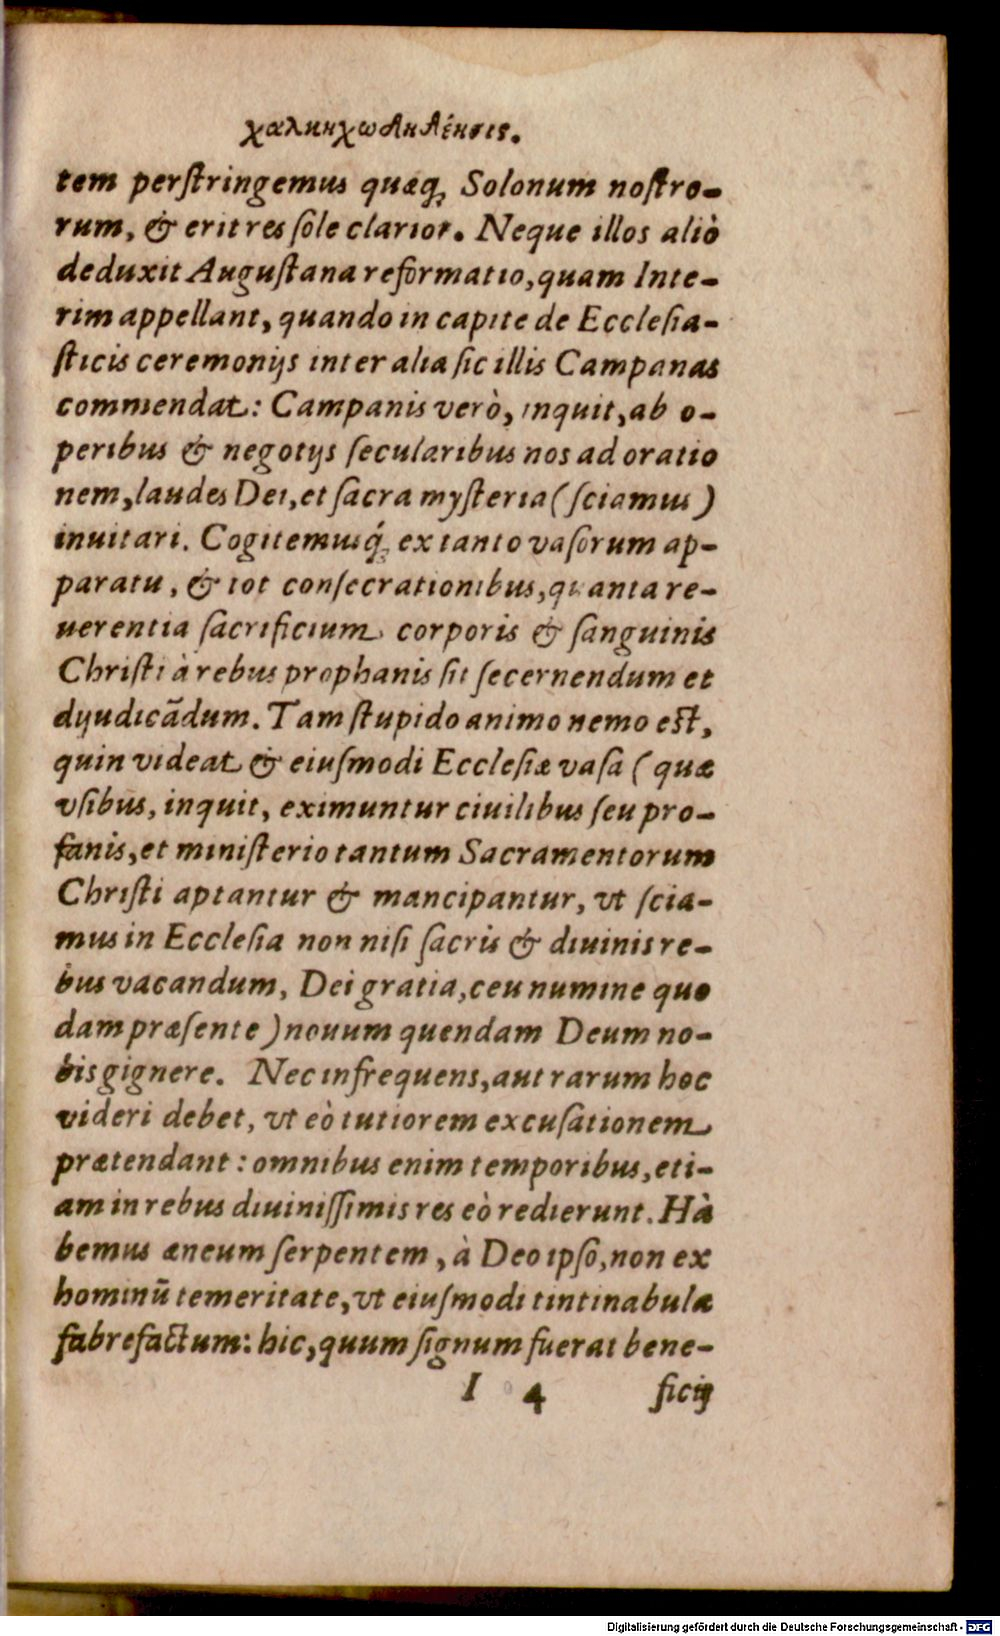 tem perſtringemus quæq; Solonum noſtro-
rum, & erit res ſole clarior. Neque illos aliò
deduxit Auguſtana reformatio, quam Inte-
rim appellant, quando in capite de Eccleſia-
ſticis ceremonijs inter alia ſic illis Campanas
commendat: Campanis verò, inquit, ab o-
peribus & negotijs ſecularibus nos ad oratio
nem, laudes Dei, et ſacra myſteria (ſciamus)
inuitari. Cogitemusq́; ex tanto vaſorum ap-
paratu, & tot conſecrationibus, quanta re-
uerentia ſacrificium corporis & ſanguinis
Chriſti à rebus prophanis ſit ſecernendum et
dijudicãdum. Tam ſtupido animo nemo eſt,
quin videat & eiuſmodi Eccleſiæ vaſa (quæ
vſibus, inquit, eximuntur ciuilibus ſeu pro-
fanis, et miniſterio tantum Sacramentorum
Chriſti aptantur & mancipantur, vt ſcia-
mus in Eccleſia non niſi ſacris & diuinis re-
bus vacandum, Dei gratia, ceu numine quo
dam præſente) nouum quendam Deum no-
bis gignere. Nec infrequens, aut rarum hoc
videri debet, vt eò tutiorem excuſationem
prætendant: omnibus enim temporibus, eti-
am in rebus diuiniſſimis res eò redierunt. Hà
bemus æneum ſerpentem, à Deo ipſo, non ex
hominũ temeritate, vt eiuſmodi tintinabula
fabrefactum: hic, quum ſignum fuerat bene-
I 4 ficij
Digitalisierung gefördert durch die Deutsche Forschungsgemeinschaft - DFG